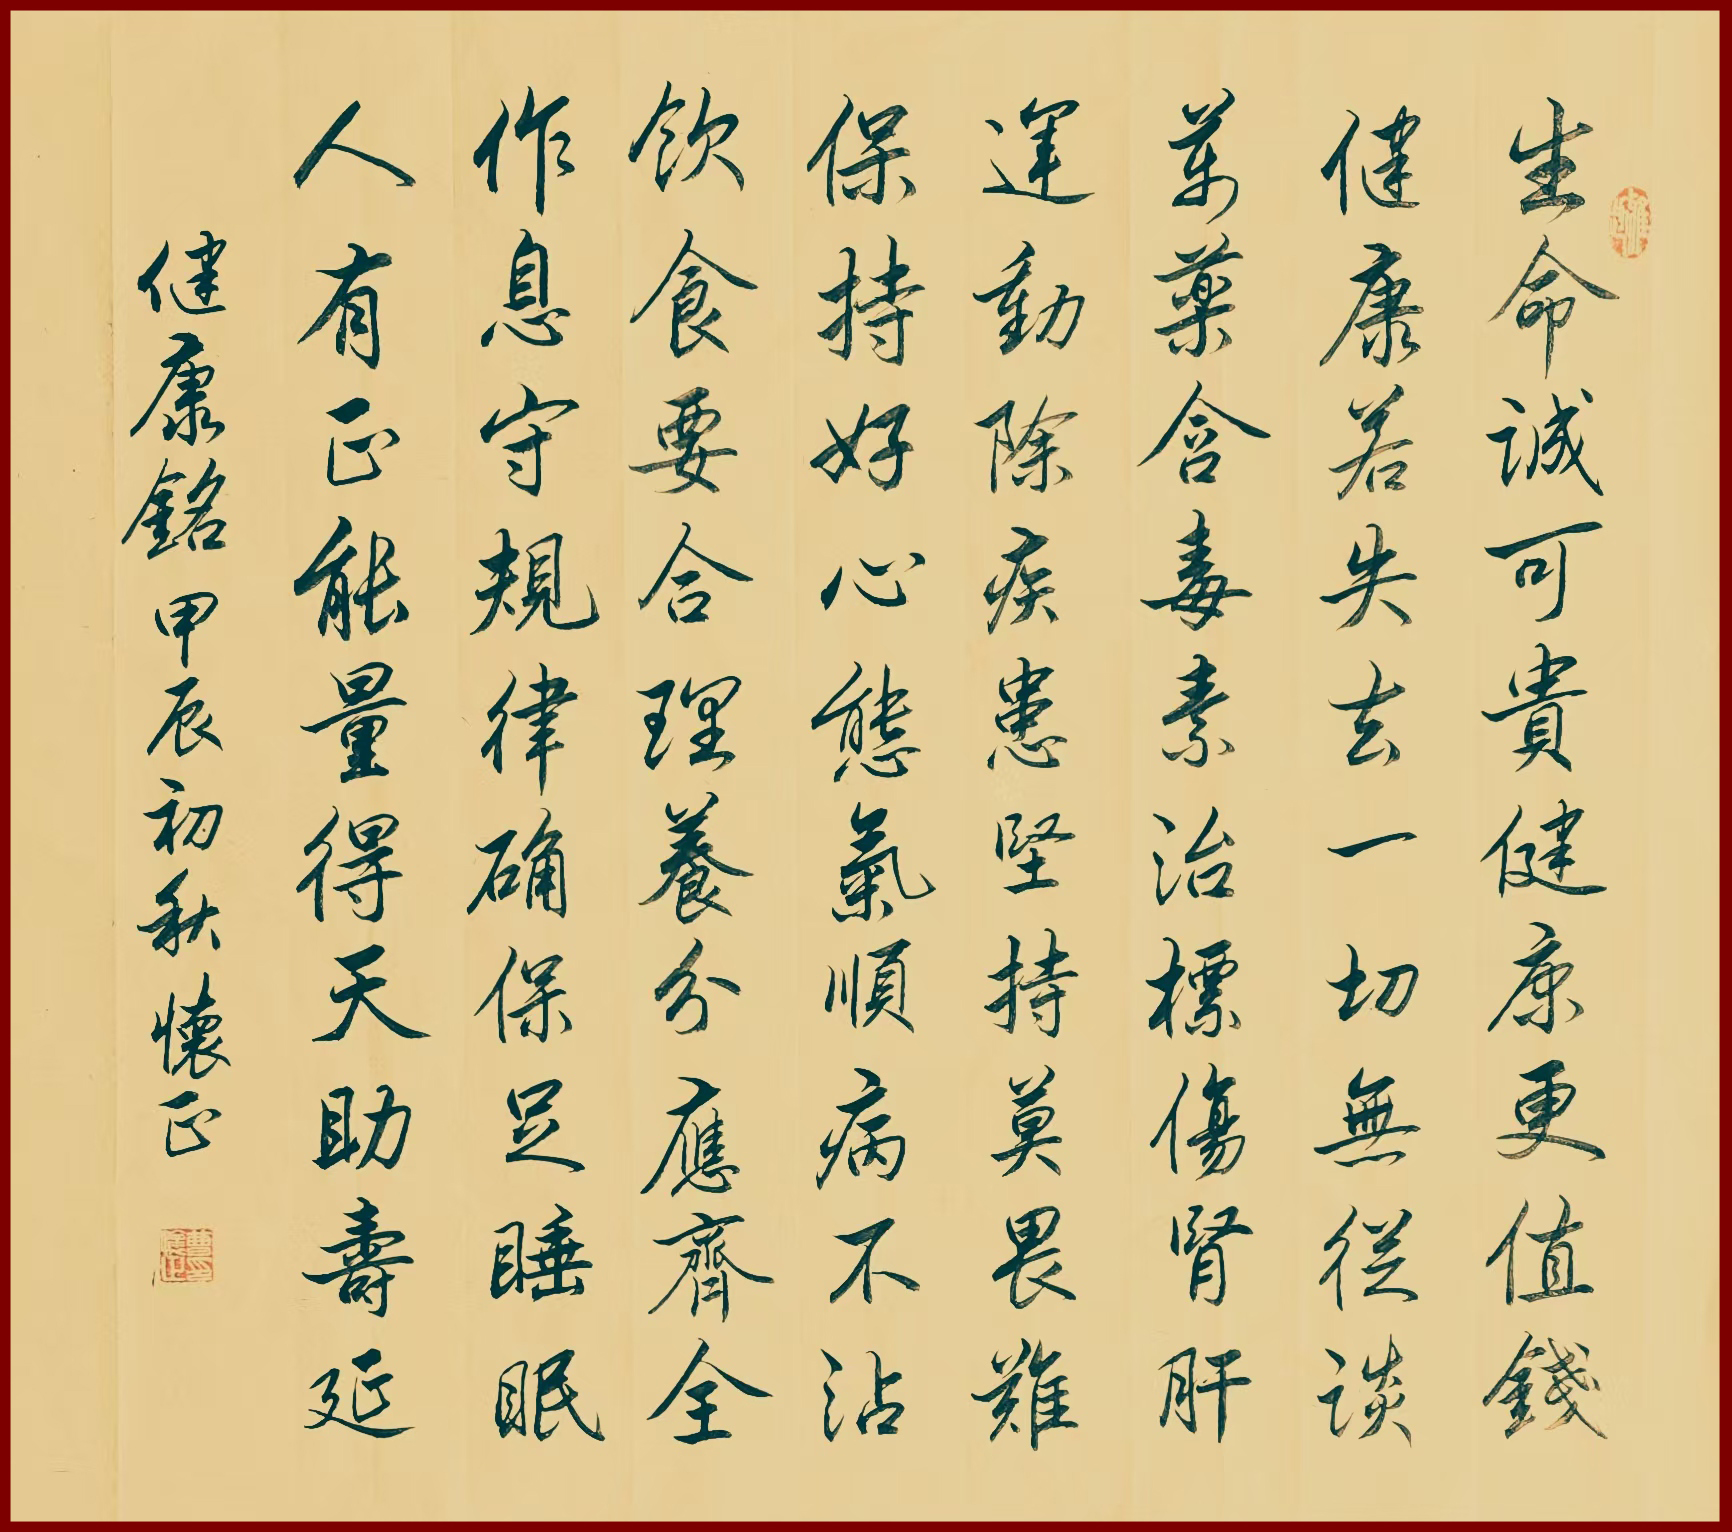 生命誠可貴健康更值錢
健康若失去一切無從談
萬藥含毒素治標傷腎肝
運動除疾患堅持莫畏難
保持好心態氣順病不沾
飲食要合理養分應齊全
作息守規律确保足睡眠
人有正能量得天助壽延
健康銘甲辰初秋懷正